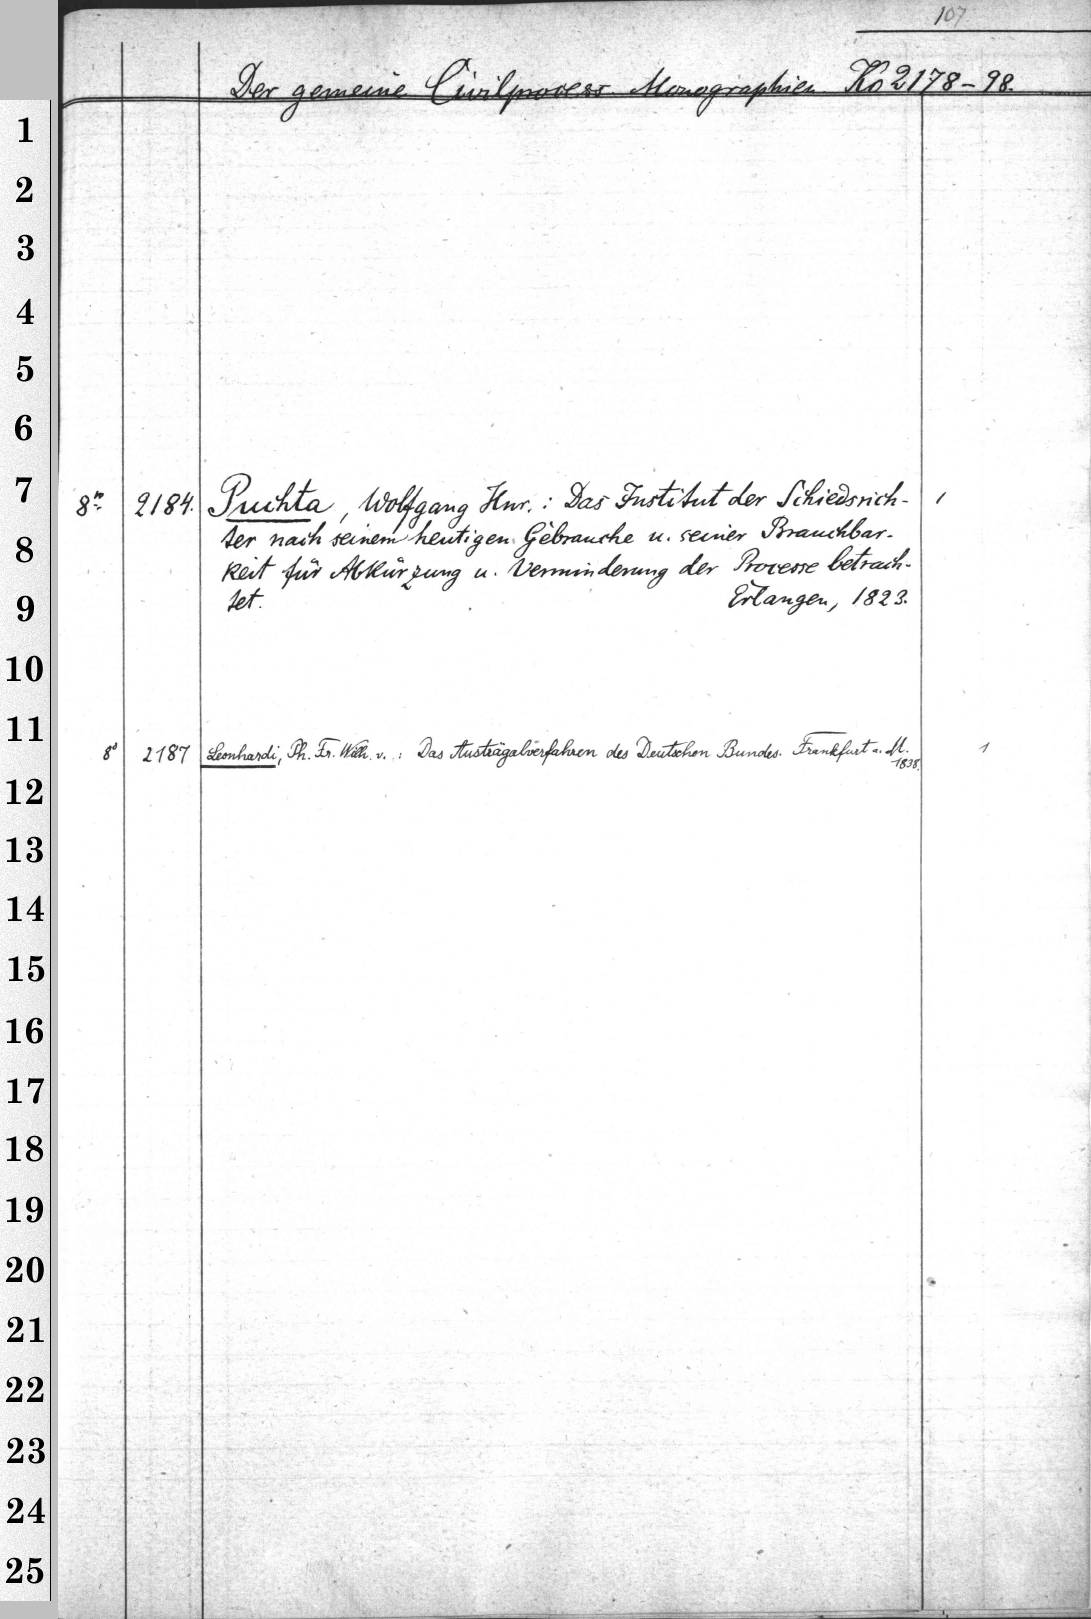 107
Der gemeine Civilprocess Monographien Ko 2178-98.
1
2
3
4
5
6
7
8º 2184. Puchta, Wolfgang Hnr.: Das Institut der Schiedsrich- 1
ter nach seinem heutigen Gebrauche u. seiner Brauchbar-
8
keit für Abkürzung u. Verminderung der Processe betrach-
tet. Erlangen, 1823.
9
10
11
8º 2187 Leonhardi, Ph. Fr. Wilh. v.: Das Austrägalverfahren des Deutschen Bundes. Frankfurt a. M. 1
1838.
12
13
14
15
16
17
18
19
20
21
22
23
24
25